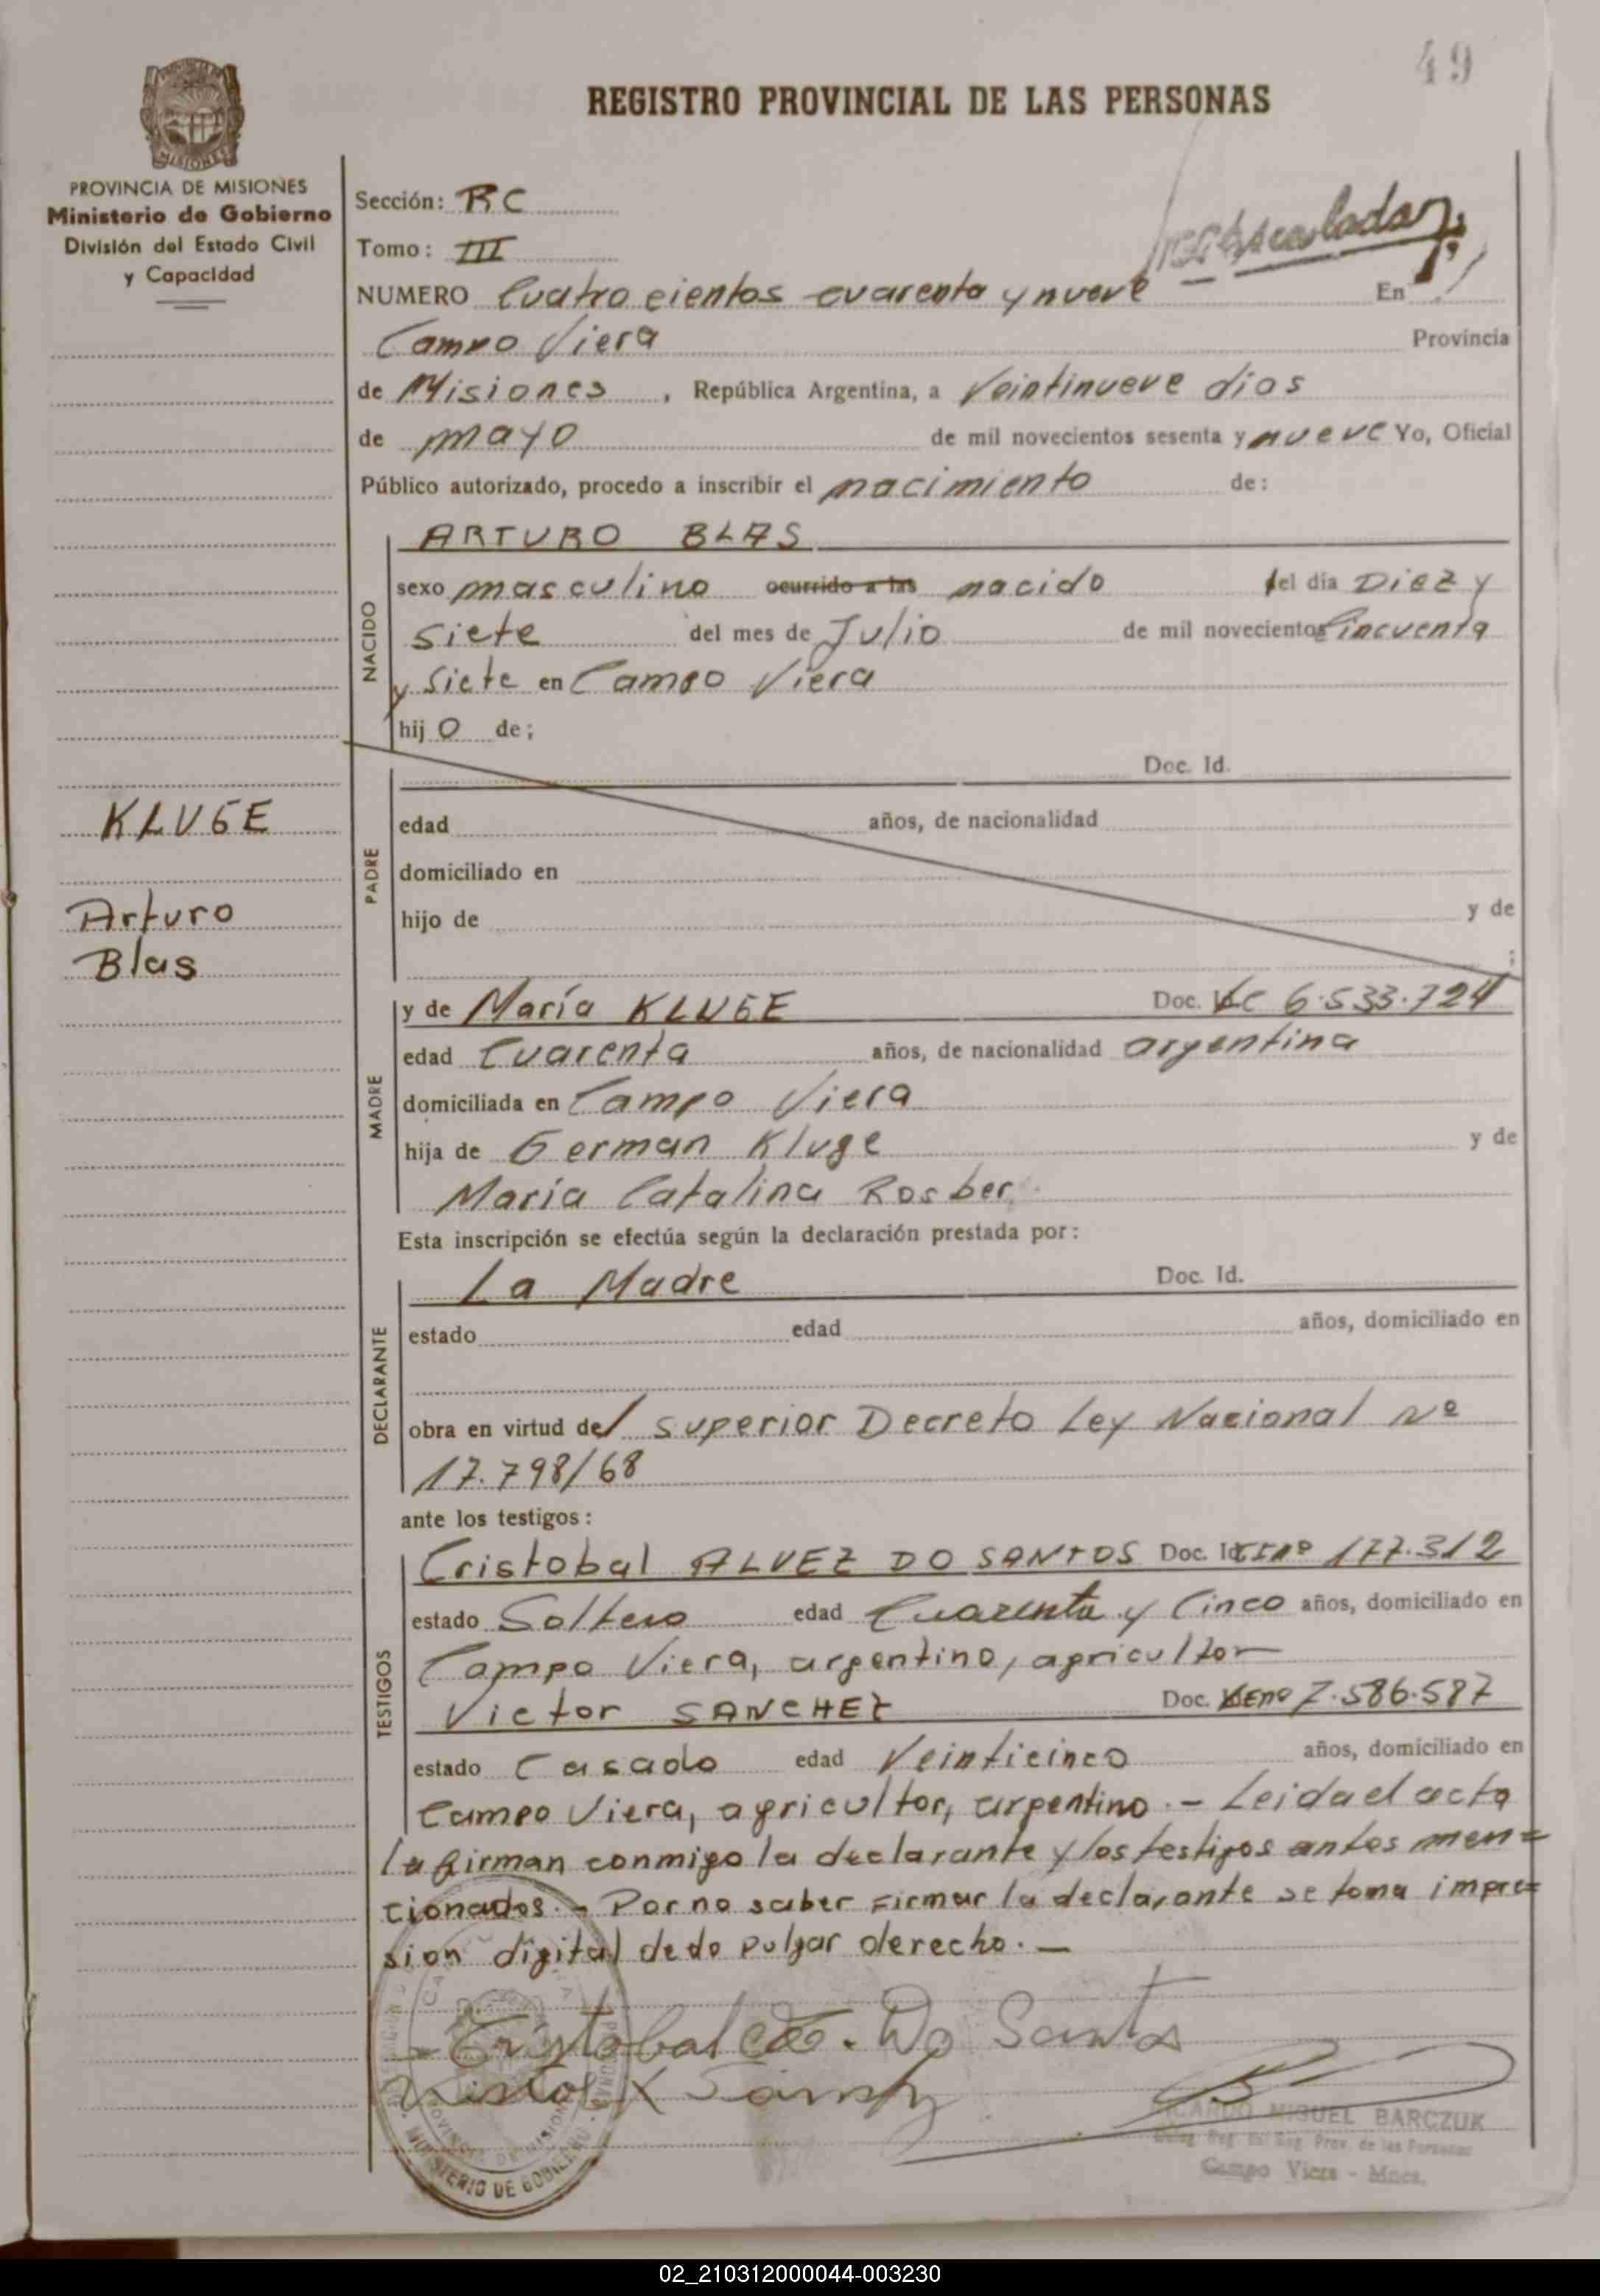 49
REGISTRO PROVINCIAL DE LAS PERSONAS
MISIONES
PROVINCIA DE MISIONES
Ministerio de Gobierno
División del Estado Civil
y Capacidad
Sección: RC
Tomo: III
NUMERO Cuatro cientos cuarenta y nueve En
Campo Viera Provincia
de Misiones, República Argentina, a Veintinueve dias
de mayo de mil novecientos sesenta y nueve Yo, Oficial
Público autorizado, procedo a inscribir el nacimiento de:
NACIDO
ARTURO BLAS
sexo masculino ocurrido a las nacido del día Diez y
siete del mes de Julio de mil novecientos Cincuenta
y Siete en Campo Viera
hijo de;
KLUGE
Arturo
Blas
PADRE
Doc. Id.
edad años, de nacionalidad
domiciliado en
hijo de y de
;
MADRE
y de María KLUGE Doc. Id. LC 6.533.724
edad Cuarenta años, de nacionalidad argentina
domiciliada en Campo Viera
hija de German Kluge y de
María Catalina Rosber
Esta inscripción se efectúa según la declaración prestada por:
DECLARANTE
La Madre Doc. Id.
estado edad años, domiciliado en
obra en virtud del superior Decreto Ley Nacional Nº
17.798/68
ante los testigos:
TESTIGOS
Cristobal ALVEZ DO SANTOS Doc. Id. CI nº 177.312
estado Soltero edad Cuarenta y Cinco años, domiciliado en
Campo Viera, argentino, agricultor
Victor SANCHEZ Doc. LE nº 7.586.587
estado Casado edad Veinticinco años, domiciliado en
Campo Viera, agricultor, argentino.- Leida el acta
la firman conmigo la declarante y los testigos antes men=
cionados.- Por no saber firmar la declarante se toma impre=
sion digital dedo pulgar derecho.-
Cristobal Do Santos
MINISTERIO DE GOBIERNO
PROVINCIA DE MISIONES
RICARDO MIGUEL BARCZUK
Reg. Prov. de las Personas
Campo Viera - Mnes.
02_210312000044-003230